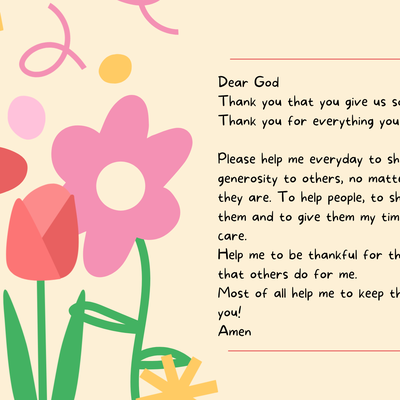 Dear God
Thank you that you give us
Thank you for everything you
Please help me everyday to
generosity to others, no
they are. To help people, to
them and to give them my
care.
Help me to be thankful for
that others do for me.
Most of all help me to keep
you!
Amen